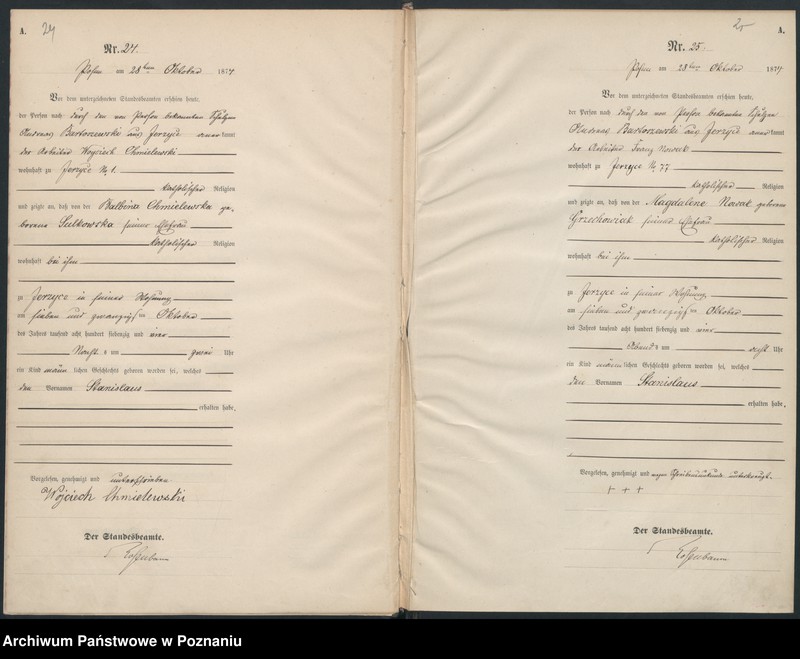 A.
24
Nr. 24.
Posen am 28ten Oktober 1874
Vor dem unterzeichneten Standesbeamten erschien heute,
der Person nach durch den von Person bekannten Schulzen
Andreas Bartoszewski aus Jerzyce anerkannt
der Arbeiter Woyciech Chmielewski
wohnhaft zu Jerzyce No 1.
katholischer Religion
und zeigte an, daß von der Balbina Chmielewska ge-
borene Sulkowska seiner Ehefrau
katholischer Religion
wohnhaft bei ihm
zu Jerzyce in seiner Wohnung
am sieben und zwanzigsten Oktober
des Jahres tausend acht hundert siebenzig und vier
Nachts um zwei Uhr
ein Kind männlichen Geschlechts geboren worden sei, welches
den Vornamen Stanislaus
erhalten habe,
Vorgelesen, genehmigt und unterschrieben
Wojciech Chmielewski
Der Standesbeamte.
25
A.
Nr. 25.
Posen am 28ten Oktober 1874
Vor dem unterzeichneten Standesbeamten erschien heute,
der Person nach durch den von Person bekannten Schulzen
Andreas Bartoszewski aus Jerzyce anerkannt
der Arbeiter Franz Nowak
wohnhaft zu Jerzyce No 77
katholischer Religion
und zeigte an, daß von der Magdalene Nowak geborene
Grzechowiak seiner Ehefrau
katholischer Religion
wohnhaft bei ihm
zu Jerzyce in seiner Wohnung
am sieben und zwanzigsten Oktober
des Jahres tausend acht hundert siebenzig und vier
Abends um Uhr
ein Kind männlichen Geschlechts geboren worden sei, welches
den Vornamen Stanislaus
erhalten habe,
Vorgelesen, genehmigt und wegen Schreibensunkunde unterkreuzt.
+ + +
Der Standesbeamte.
Archiwum Państwowe w Poznaniu